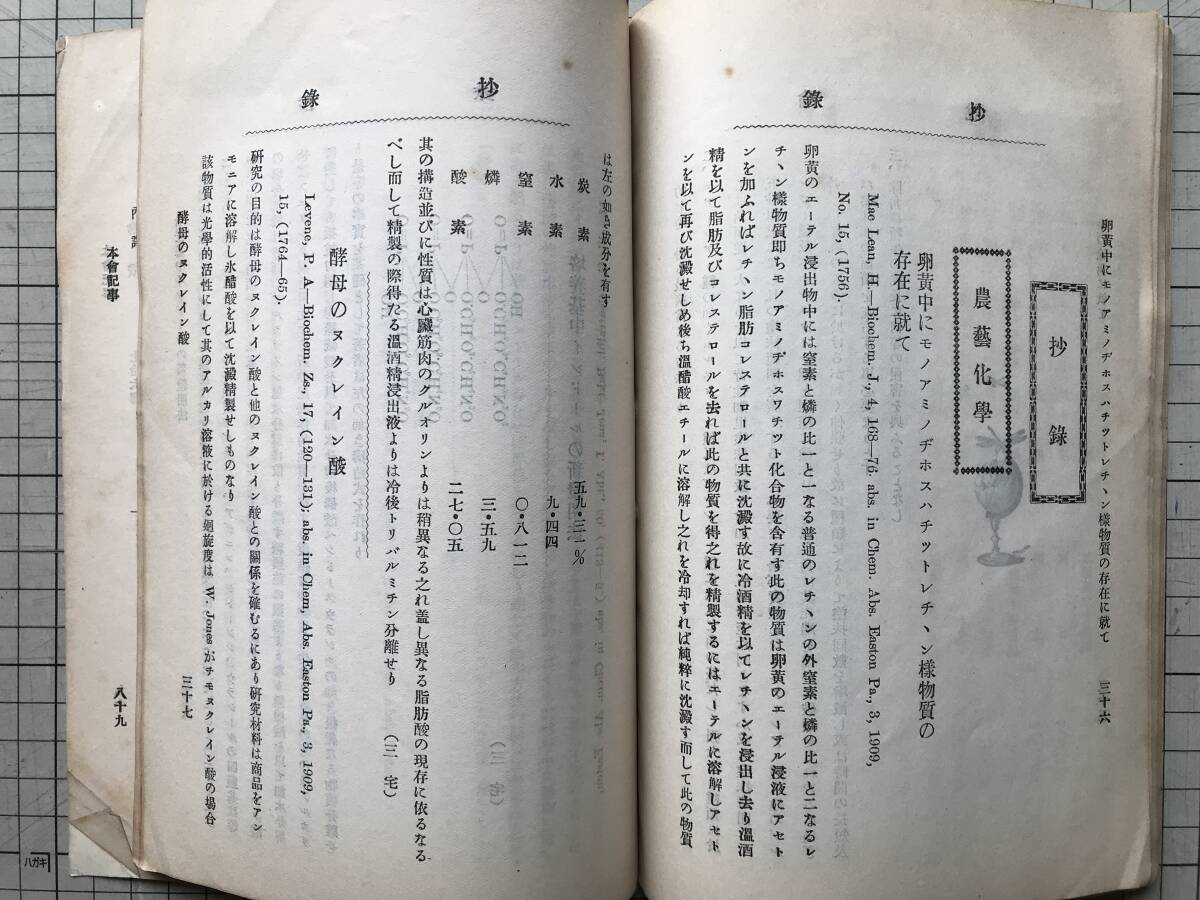 卵黄中にモノアミノヂホスハチツトレチヽン樣物質の存在に就て
三十六
抄
錄
抄錄
農藝化學
卵黄中にモノアミノヂホスハチツトレチヽン樣物質の
存在に就て
Mac Lean, H.—Biochem. J., 4, 168—76. abs. in Chem. Abs. Easton Pa., 3, 1909,
No. 15, (1756).
卵黄のエーテル浸出物中には窒素と燐の比一と一なる普通のレチヽンの外窒素と燐の比一と二なるレ
チヽン樣物質即ちモノアミノヂホスワチツト化合物を含有す此の物質は卵黄のエーテル浸液にアセト
ンを加ふればレチヽン脂肪コレステロールと共に沈澱す故に冷酒精を以てレチヽンを浸出し去り溫酒
精を以て脂肪及びコレステロールを去れば此の物質を得之れを精製するにはエーテルに溶解しアセト
ンを以て再び沈澱せしめ後ち溫醋酸エチールに溶解し之れを冷却すれば純粹に沈澱す而して此の物質
抄
錄
は左の如き成分を有す
炭素 五九・三一%
水素 九・四四
窒素 〇・八一二
燐 三・五九
酸素 二七・〇五
其の搆造並びに性質は心臟筋肉のクルオリンよりは稍異なる之れ盖し異なる脂肪酸の現存に依るなる
べし而して精製の際得たる溫酒精浸出液よりは冷後トリパルミチン分離せり
(三宅)
酵母のヌクレイン酸
Levene, P. A—Biochem. Zs., 17, (120—131); abs. in Chem, Abs. Easton Pa., 3, 1909,
15, (1764—65).
研究の目的は酵母のヌクレイン酸と他のヌクレイン酸との關係を確むるにあり研究材料は商品をアン
モニアに溶解し氷醋酸を以て沈澱精製せしものなり
該物質は光學的活性にして其のアルカリ溶液に於ける廻旋度は W. Jones がチモヌクレイン酸の場合
酵母のヌクレイン酸
三十七
本會記事
八十九
ハガキ